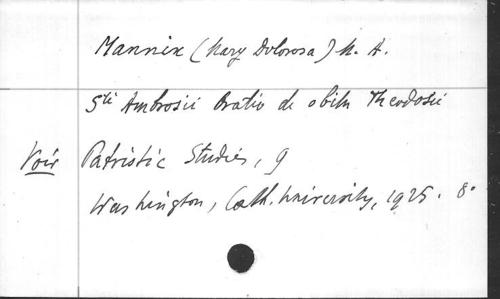 Mannix (Mary Dolorosa) M. A.
Sti Ambrosii Oratio de obitu Theodosii
Voir Patristic Studies, 9
Washington, Cath. University, 1925. 8°